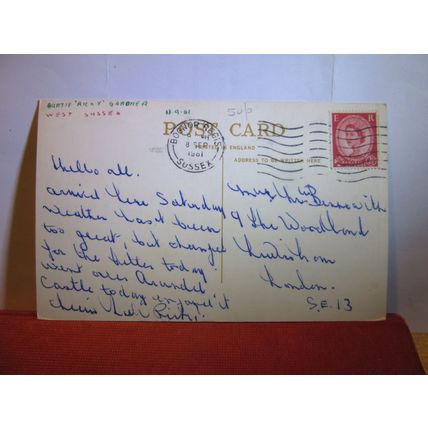 GERTIE "RICKY" GARDNER
WEST SUSSEX
11-9-61
50p
POST CARD
PRINTED IN ENGLAND
ADDRESS TO BE WRITTEN HERE
BOGNOR REGIS
8 SEP
1961
SUSSEX
E R
Hello all.
arrived here Saturday
weather hasn't been
too great, but changed
for the better today.
went over Arundel
Castle today enjoyed it
9 The Woodland
Lewisham
London.
S.E. 13